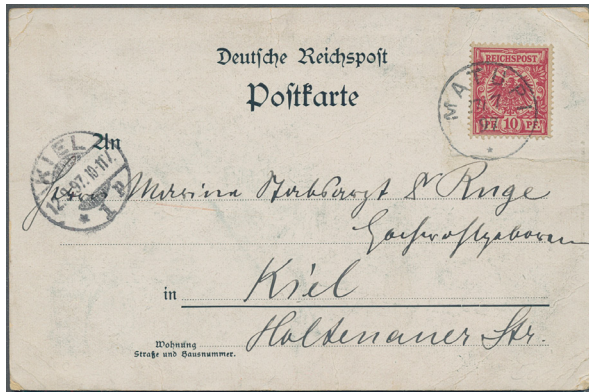 Deutsche Reichspost
Postkarte
REICHSPOST
10 PF
MATUPI
An
KIEL
12.9.97.10-11V.
* 1 p
Herrn Marine Stabsarzt Dr Ruge
Hochwohlgeboren
in Kiel
Wohnung
Straße und Hausnummer.
Holtenauer Str.